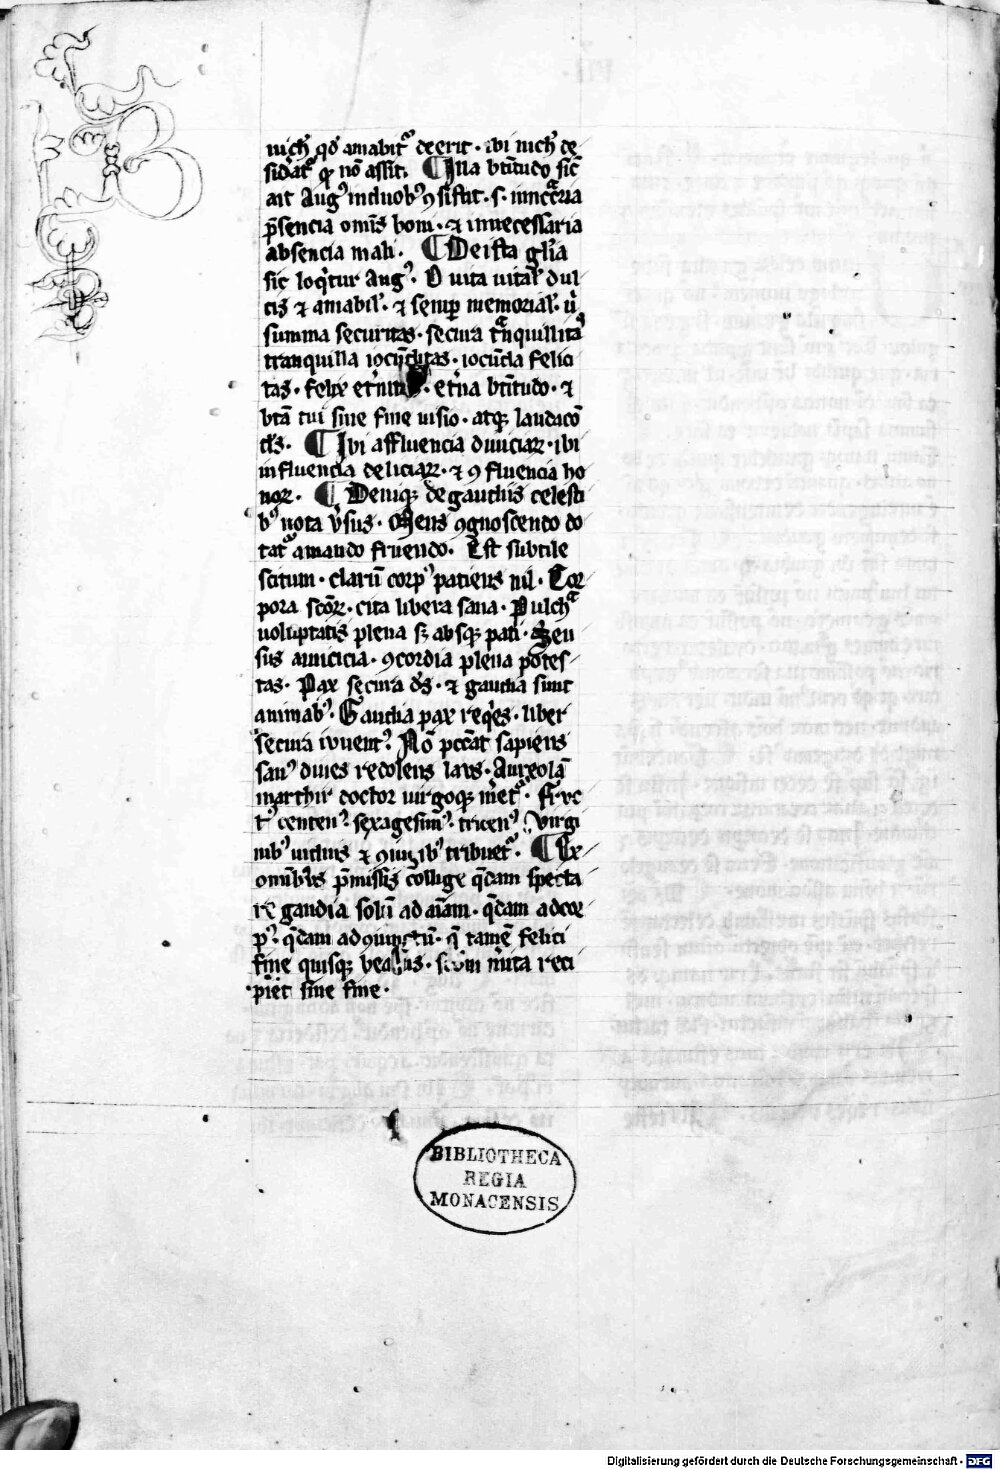 nich̅ qd̕ amabitᷣ deerit · ibi nich̅ de
sid̕atᷣ qͥ nō assit. ¶ Illa btītudo sic̅
ait Augꝰ in duobꝰ ꝯsistit · s · in nc̅c̅aria
p̄sencia om̄s boni · ⁊ in necessaria
absencia mali . ¶ De ista gl̅ia
sic loqͥtur Augꝰ . O vita vital̕ dul
cis ⁊ amabil̕ . ⁊ semꝑ memorial̕ . ut̕
summa securitas · secura tᷓnquillitaˢ
tranquilla iocūditas · iocūda felici
tas · felix et̕nitas · et̕na btītudo · ⁊
btā tui sine fine visio · atqꝫ laudacō
d̕s . ¶ Ibi affluencia diuiciaꝝ · ibi
influencia deliciaꝝ · ⁊ ꝯfluencia ho
noꝝ . ¶ Deniqꝫ de gaudiis celesti
bꝰ nota v̕sus · Mens ꝯgnoscendo do
tatᷣ amando fruendo . Est subtile
scitum · clarū corpꝰ patiens nil · Cor
pora sc̅oꝝ · cita libera sana · Pulchᷓ
voluptatis plena sꝫ absqꝫ pati · Sen
sus amicicia · ꝯcordia plena potes
tas · Pax secura d̕s · ⁊ gaudia sunt
animabꝰ . Gaudia pax req̕es · liber
secura iuuentꝰ Nō pc̅cat sapiens
sanꝰ diues redolens laus · Aureolā
marthir doctor uirgoqꝫ m̕etᷣ · Fruc
tꝰ centenꝰ · sexagesimꝰ · tricenꝰ Virgi
nibꝰ viduis ⁊ ꝯiugibꝰ tribuetᷣ . ¶ Ex
omībus p̄missis collige qͣdam specta
re gaudia solū ad aīam · qͣdam ad cor
pꝰ . qͣdam ad ꝯiunctū · qͣ tamē felici
fine quisqꝫ beatus · s̅c̅dm m̕ita reci
piet sine fine ·
BIBLIOTHECA
REGIA
MONACENSIS
Digitalisierung gefördert durch die Deutsche Forschungsgemeinschaft - DFG